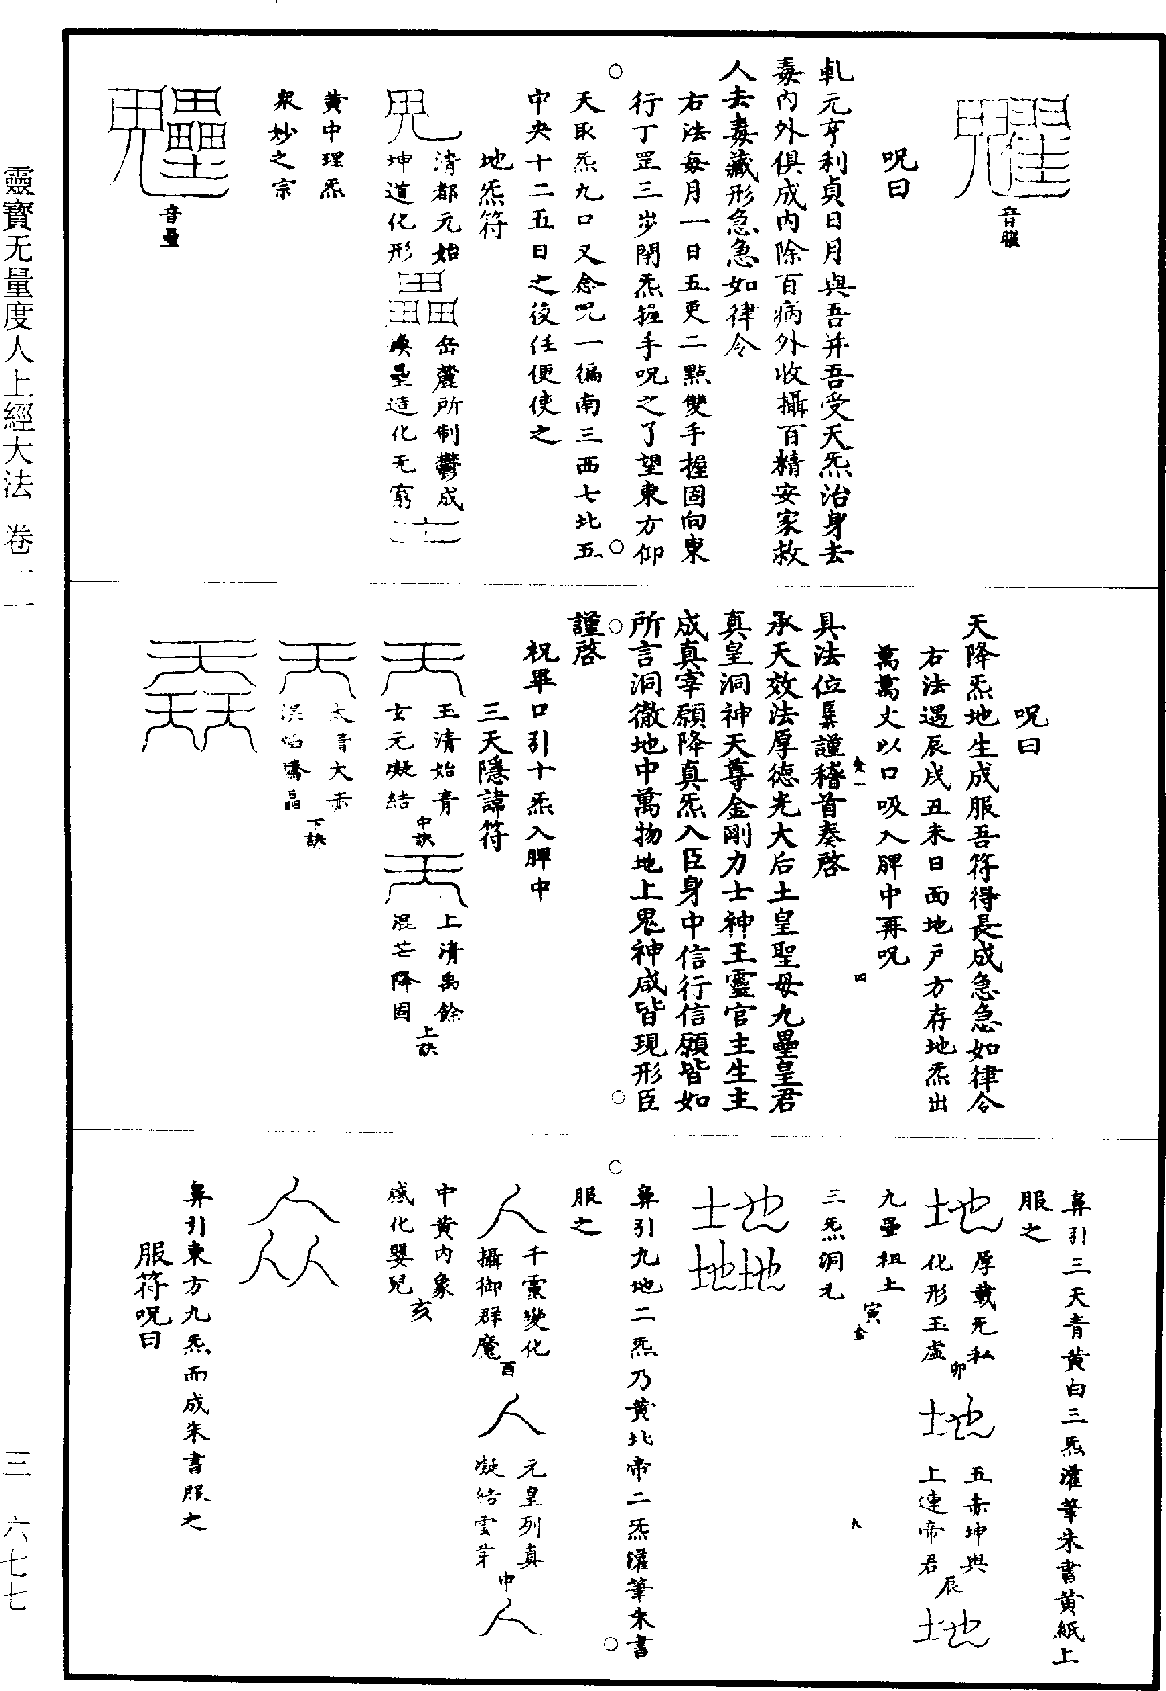 靈寶无量度人上經大法　卷二
三　六七七
音㬋
呪曰
乹元亨利貞日月與吾并吾受天炁治身去
毒內外俱成內除百病外收攝百精安家救
人去毒藏形急急如律令
右法每月一日五更二點雙手握固向東
行丁罡三步閉炁握手呪之了望東方仰
天取炁九口又念呪一徧南三西七北五
中央十二五日之後任便使之
地炁符
清都元始
坤道化形
岳麓所制鬱成
魂壘造化无窮
黃中理炁
衆妙之宗
音壘
呪曰
天降炁地生成服吾符得長成急急如律令
右法遇辰戌丑未日面地戶方存地炁出
萬萬丈以口吸入脾中再呪
具法位某謹稽首奏啓
承天效法厚德光大后土皇聖母九壘皇君
真皇洞神天尊金剛力士神王靈官主生主
成真宰願降真炁入臣身中信行信願皆如
所言洞徹地中萬物地上鬼神咸皆現形臣
謹啓
祝畢口引十炁入脾中
三天隱諱符
天
玉清始青
玄元凝結
中訣
天
上清禹餘
混芒降因
上訣
天
太青大赤
下訣
鼻引三天青黃白三炁灌筆朱書黃紙上
服之
地
厚載无私
化形玉虛
卯
地
五赤坤與
上連帝君
辰
地
九壘祖土
三炁洞元
寅
鼻引九地二炁乃黃北帝二炁灌筆朱書
服之
人
千靈變化
攝御群魔
酉
人
元皇列真
凝結雲芽
中
人
中黃內象
感化嬰兒
亥
鼻引東方九炁而成朱書服之
服符呪曰